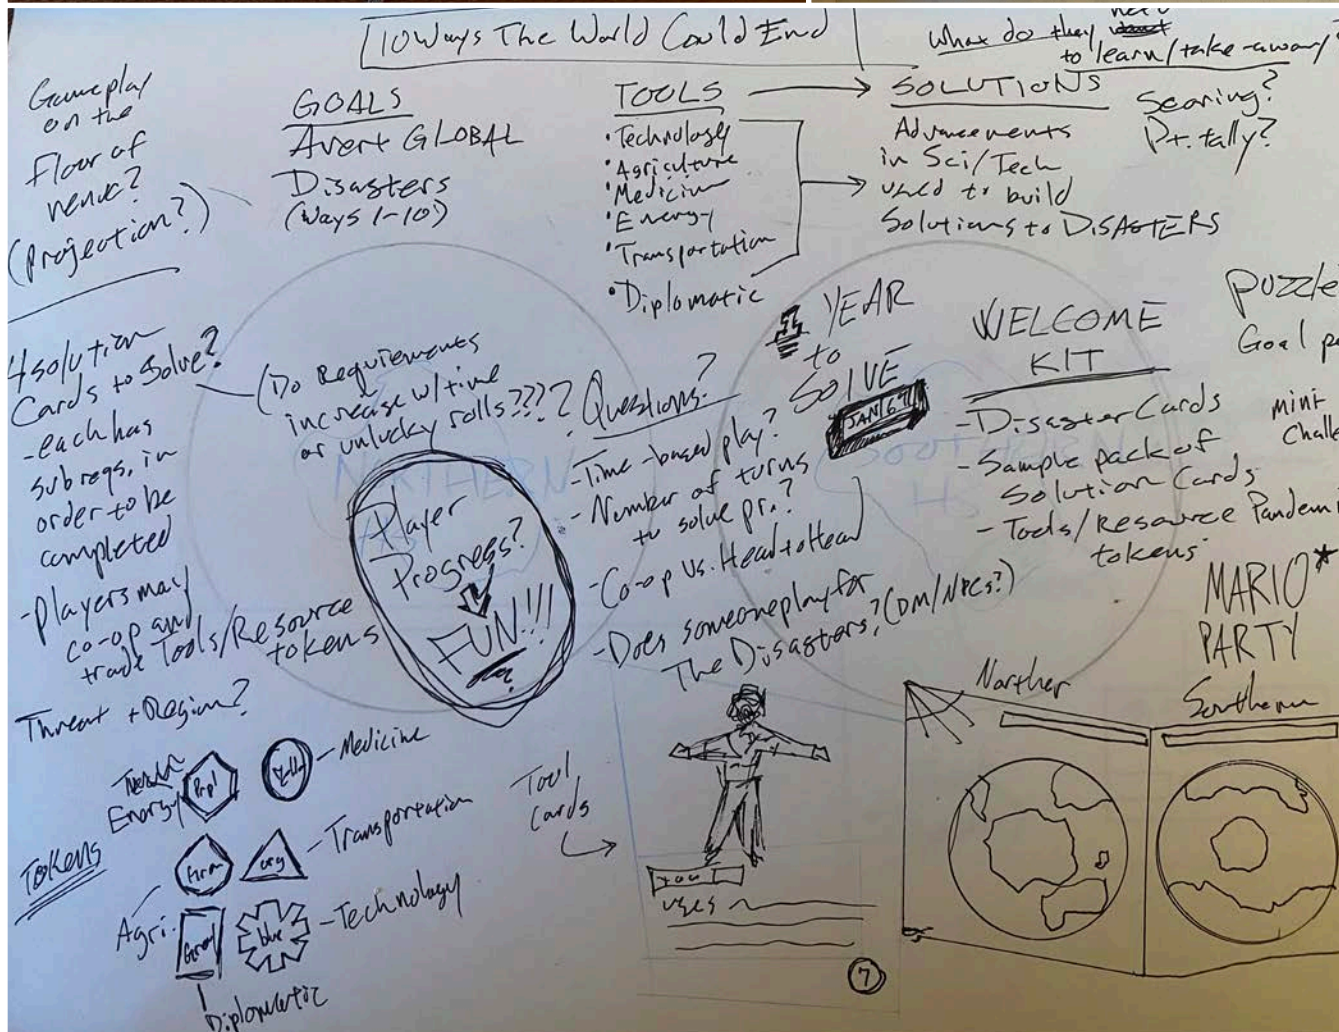 10 Ways The World Could End
What do they need
to learn/take-away?
Gameplay
on the
Floor of
venue?
(projection?)
GOALS
Avert GLOBAL
Disasters
(Ways 1-10)
TOOLS
• Technology
• Agriculture
• Medicine
• Energy
• Transportation
• Diplomatic
SOLUTIONS
Advancements
in Sci/Tech
used to build
Solutions to DISASTERS
Scoring?
Pt. tally?
4 solution
Cards to Solve?
- each has
sub reqs, in
order to be
completed
- Players may
co-op and
trade Tools/Resource
tokens
(Do Requiements
increase w/time
or unlucky rolls????
Player
Progress?
FUN!!!
Questions?
- Time-based play?
- Number of turns
to solve pr.?
- Co-op vs. Head to Head
- Does someone play for
The Disasters? (DM/NPCs?)
1 YEAR
to
SOLVE
JAN
WELCOME
KIT
- Disaster Cards
- Sample pack of
Solution Cards
- Tools/Resource
tokens
Puzzle
Goal
MARIO*
PARTY
NORTHERN
SOUTHERN
Threat + Region?
TOKENS
Energy
Prpl
Medicine
Agri.
Grn
Transportation
org
Technology
blue
Diplomatic
Tool
Cards
tool
uses
7
Norther
Southern